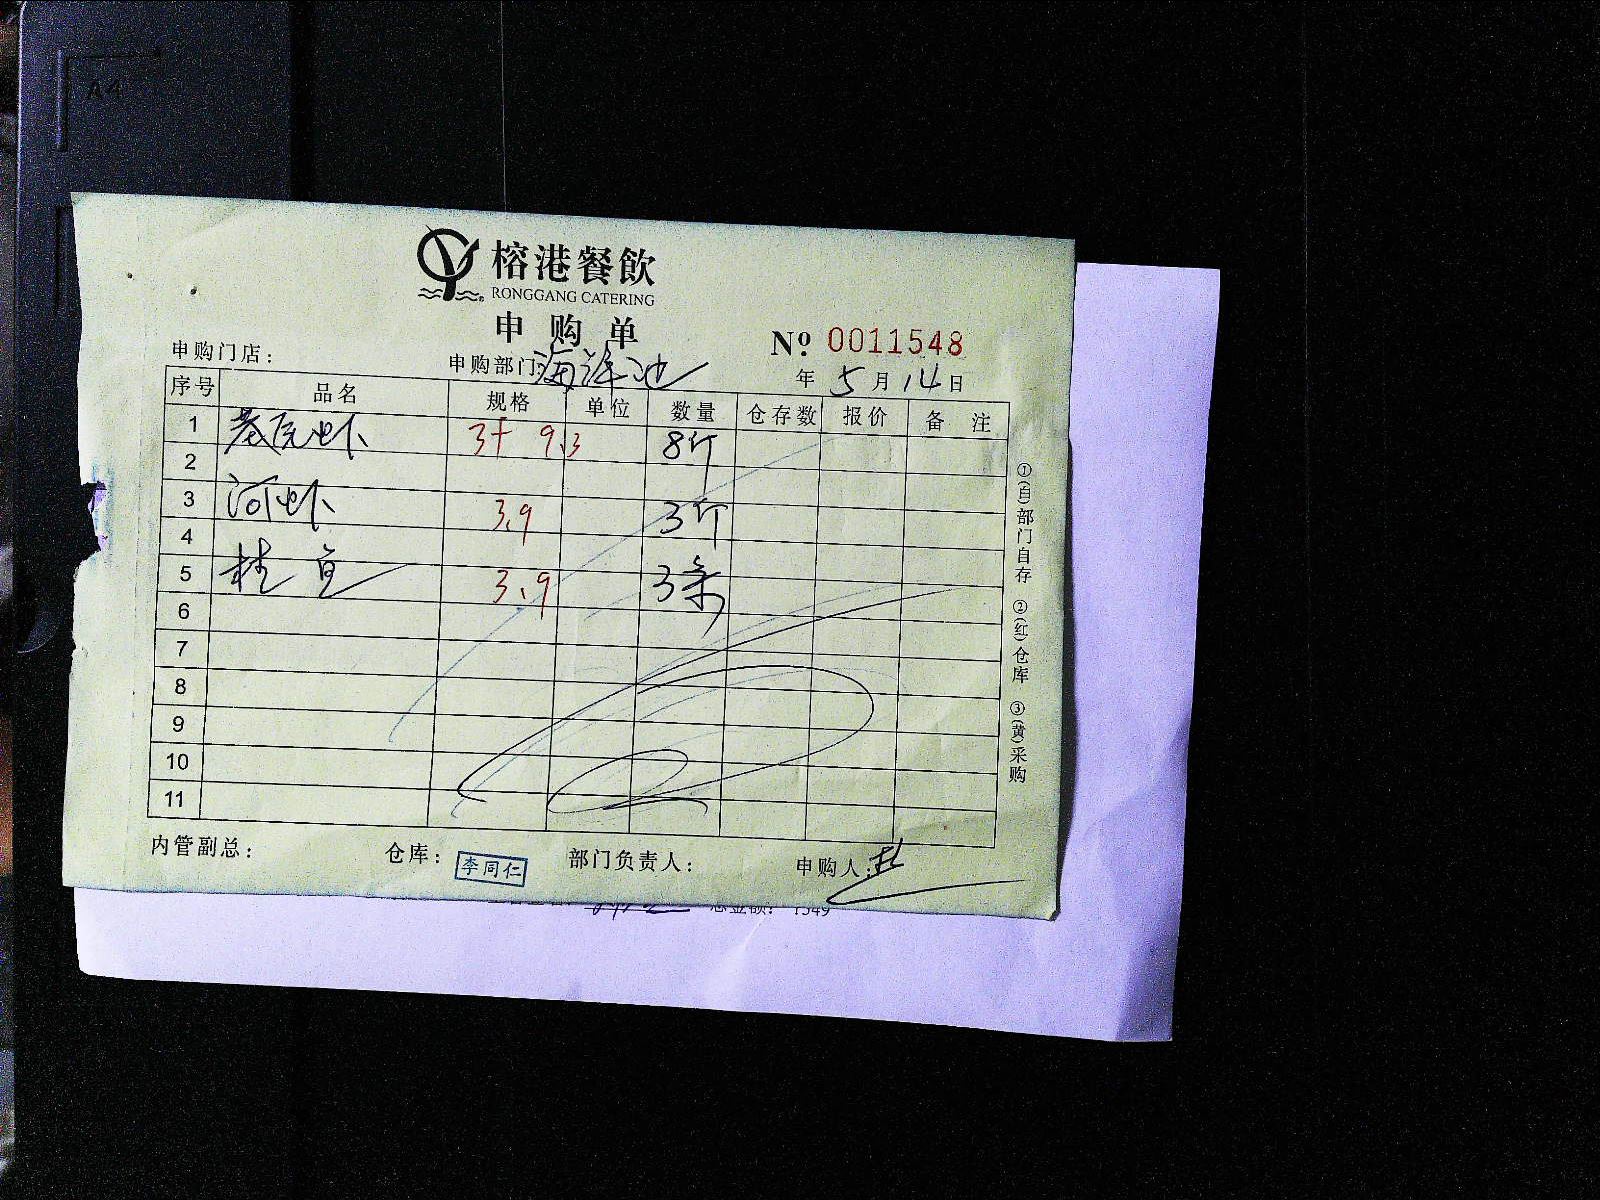 A4
榕港餐飲
RONGGANG CATERING
申购单
№ 0011548
申购门店： 申购部门：海洋池 年 5 月 14 日
序号 品名 规格 单位 数量 仓存数 报价 备注
1 基尾虾 3十 9.3 8斤
2
3 河虾 3.9 3斤
4
5 桂鱼 3.9 3条
6
7
8
9
10
11
①(白)部门自存 ②(红)仓库 ③(黄)采购
内管副总： 仓库：李同仁 部门负责人： 申购人：
总金额： 1549